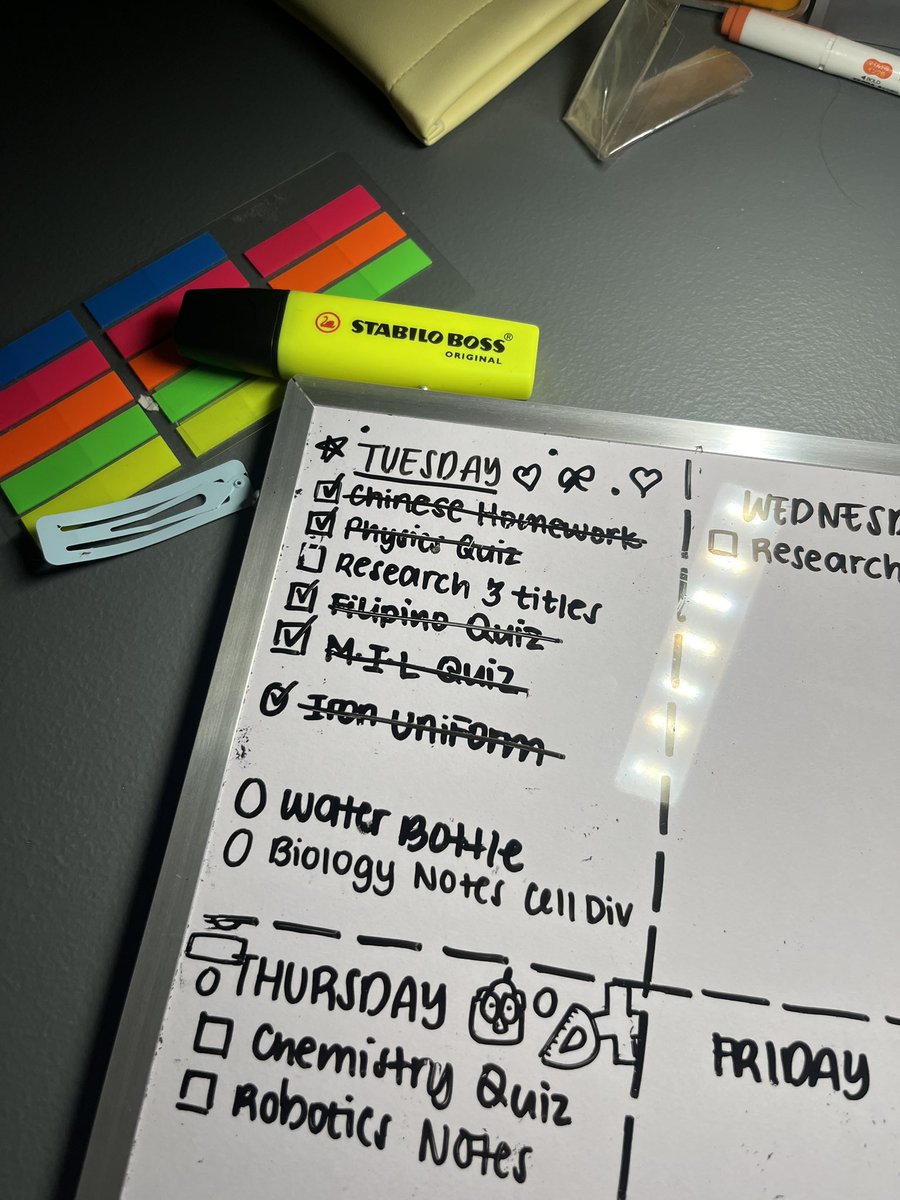 STABILO BOSS®
ORIGINAL
TUESDAY
Chinese Homework
Physics Quiz
Research 3 titles
Filipino Quiz
M.I.L Quiz
Iron uniform
Water Bottle
Biology Notes Cell Div
WEDNESD
Research
THURSDAY
Chemistry Quiz
Robotics Notes
FRIDAY
BOLD